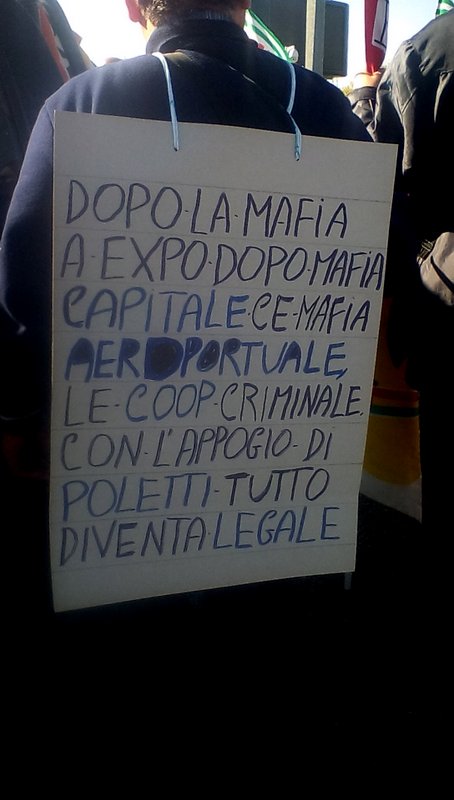 DOPO·LA·MAFiA
A·EXPO·DOPO·MAFiA
CAPITALE·CE·MAFiA
AEROPORTUALE,
LE·COOP·CRIMINALE.
CON·L'APPOGIO·DI
POLETTI·TUTTO
DIVENTA·LEGALE